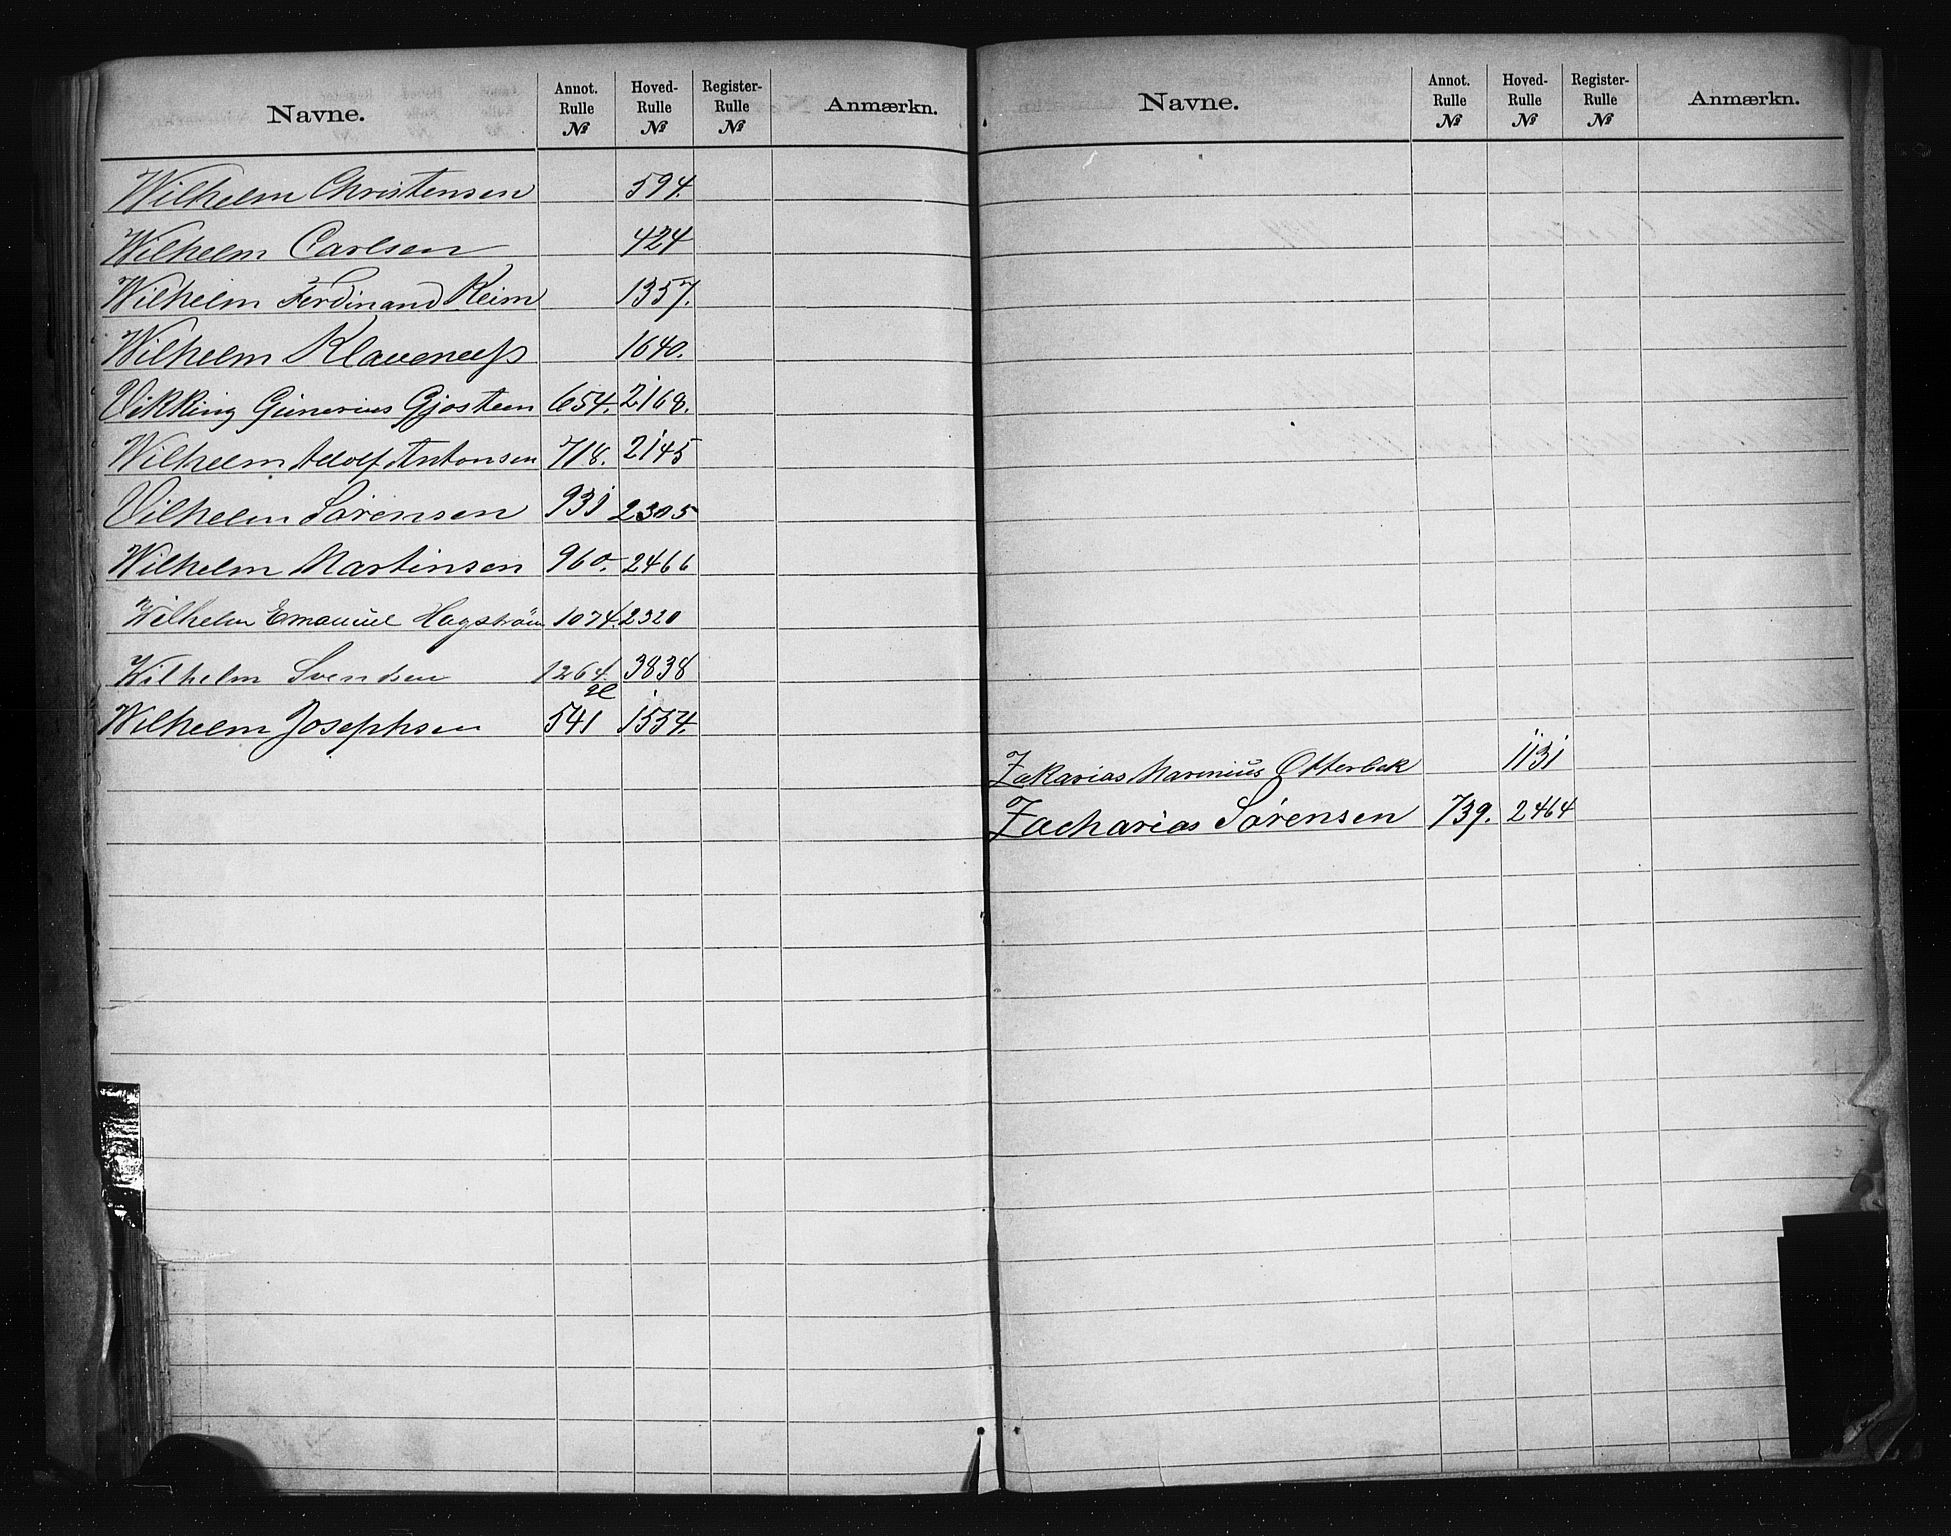 Navne. Annot. Rulle № Hoved-Rulle № Register-Rulle № Anmærkn.
Wilhelm Christensen 594.
Wilhelm Carlsen 424
Wilhelm Ferdinand Keim 1357.
Wilhelm Klaveness 1640.
Vikking Gunerius Gjosteen 654. 2168.
Wilhelm Adolf Antonsen 718. 2145
Vilhelm Sørensen 931 2305
Wilhelm Martinsen 960. 2466
Wilhelm Emanuel Hagström 1074. 2320
Wilhelm Svendsen 1264. 3838
Wilhelm Josephsen 541 1554.
Navne. Annot. Rulle № Hoved-Rulle № Register-Rulle № Anmærkn.
Zakarias Marenius Otterbek 1131
Zacharias Sørensen 739. 2464